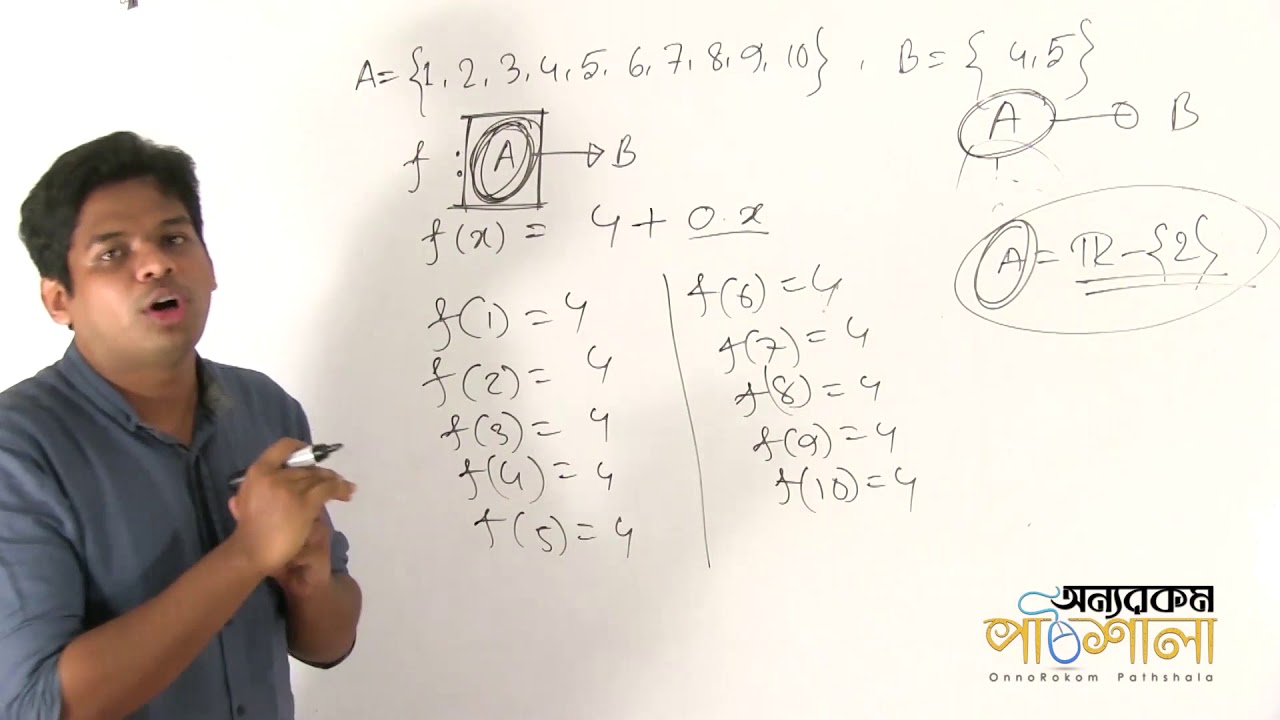 A = {1, 2, 3, 4, 5, 6, 7, 8, 9, 10} , B = { 4, 5}
f : A → B
A B
f(x) = 4 + 0.x
A = R - {2}
f(1) = 4
f(2) = 4
f(3) = 4
f(4) = 4
f(5) = 4
f(6) = 4
f(7) = 4
f(8) = 4
f(9) = 4
f(10) = 4
অন্যরকম
পাঠশালা
OnnoRokom Pathshala